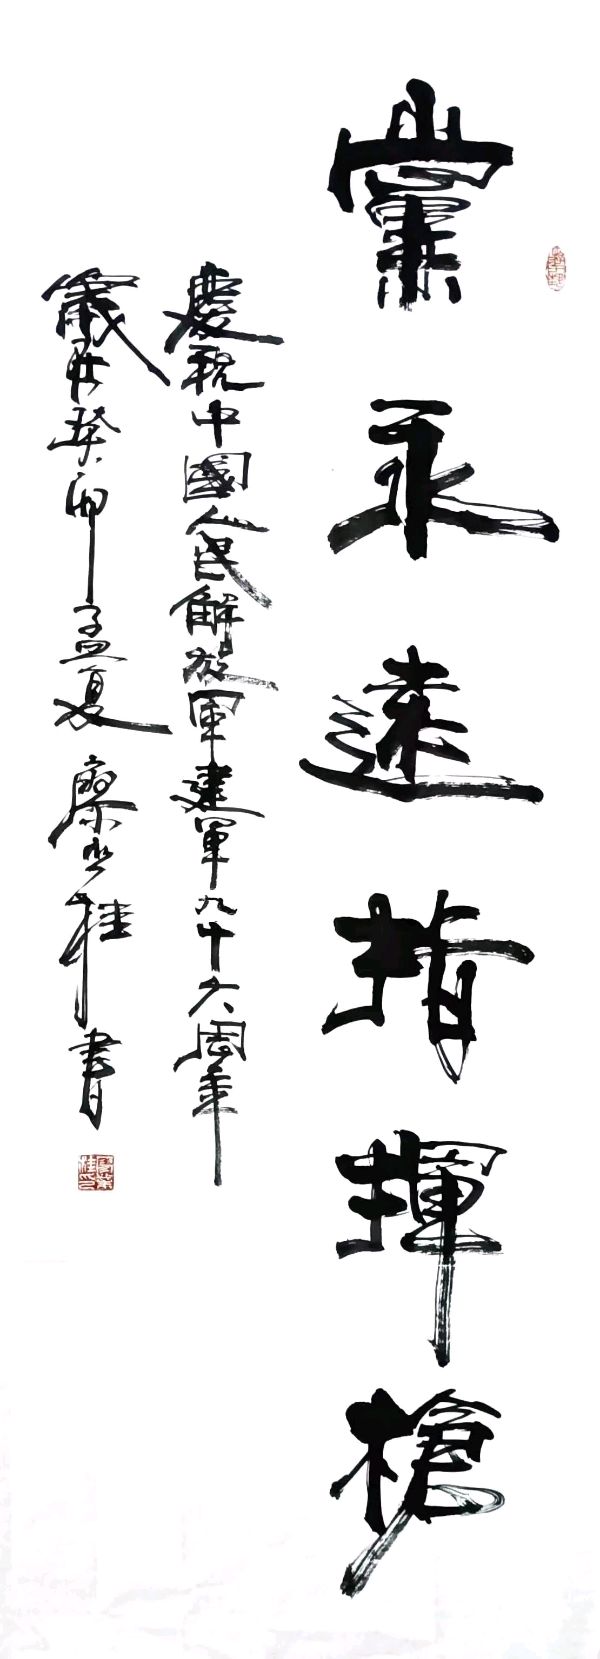 黨永遠指揮槍
慶祝中國人民解放軍建軍九十六周年
歲在癸卯孟夏 廖桂書